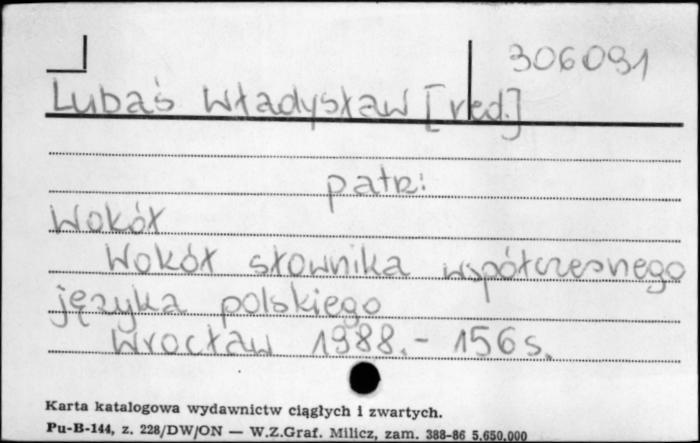 306091
Lubaś Władysław [red.]
patrz:
Wokół
Wokół słownika współczesnego
języka polskiego
Wrocław 1988. - 156 s.
Karta katalogowa wydawnictw ciągłych i zwartych.
Pu-B-144, z. 228/DW/ON — W.Z.Graf. Milicz, zam. 388-86 5.650.000